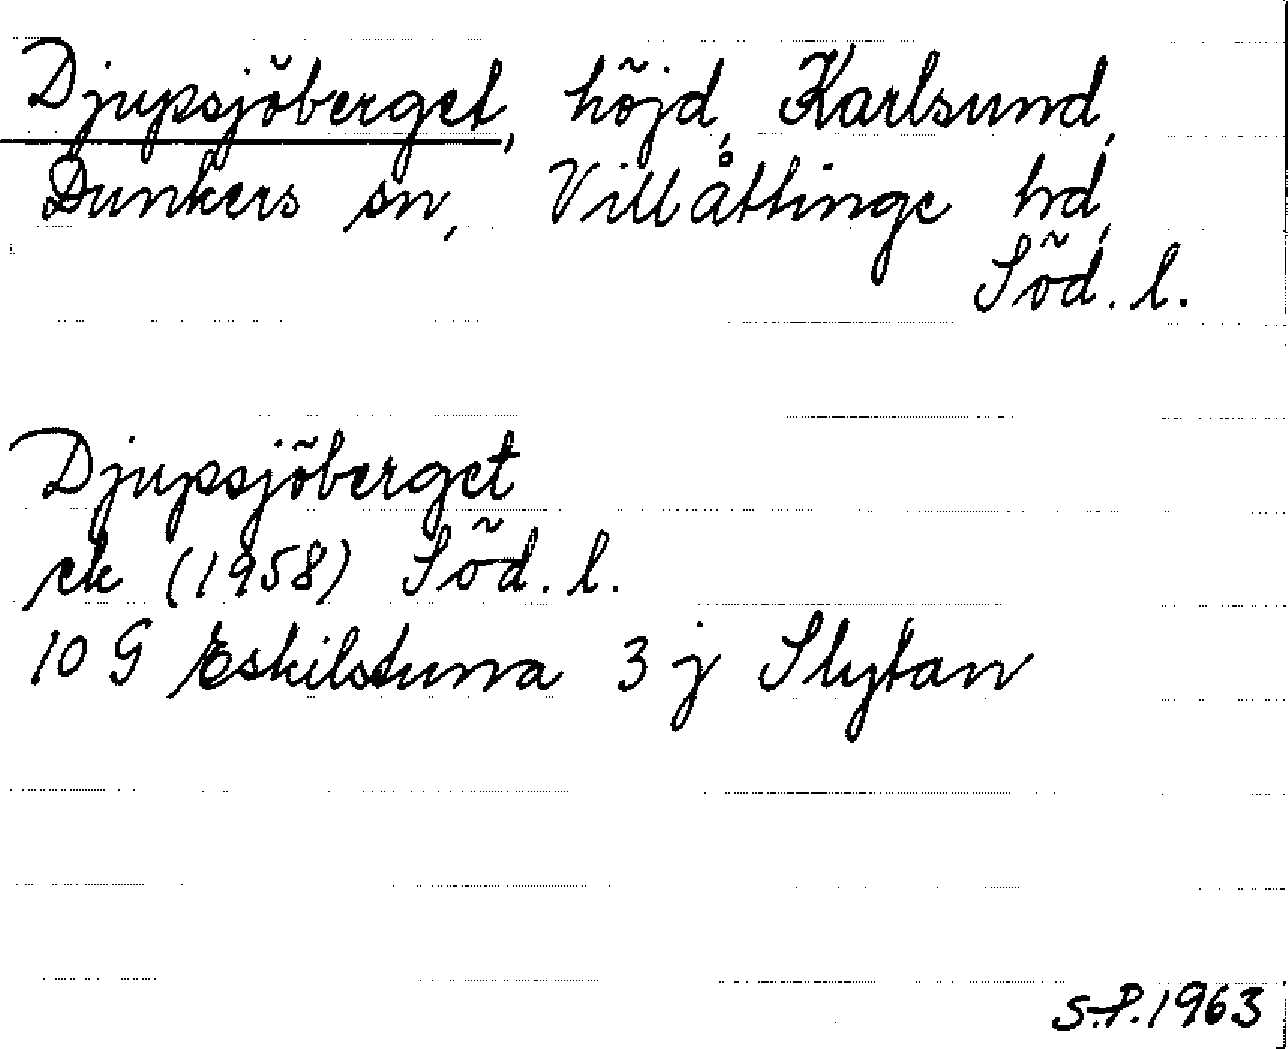 Djupsjöberget, höjd, Karlsund,
Dunkers sn, Villåttinge hd,
Söd. l.
Djupsjöberget
ek (1958) Söd. l.
10 G Eskilstuna 3 j Slytan
S.P. 1963